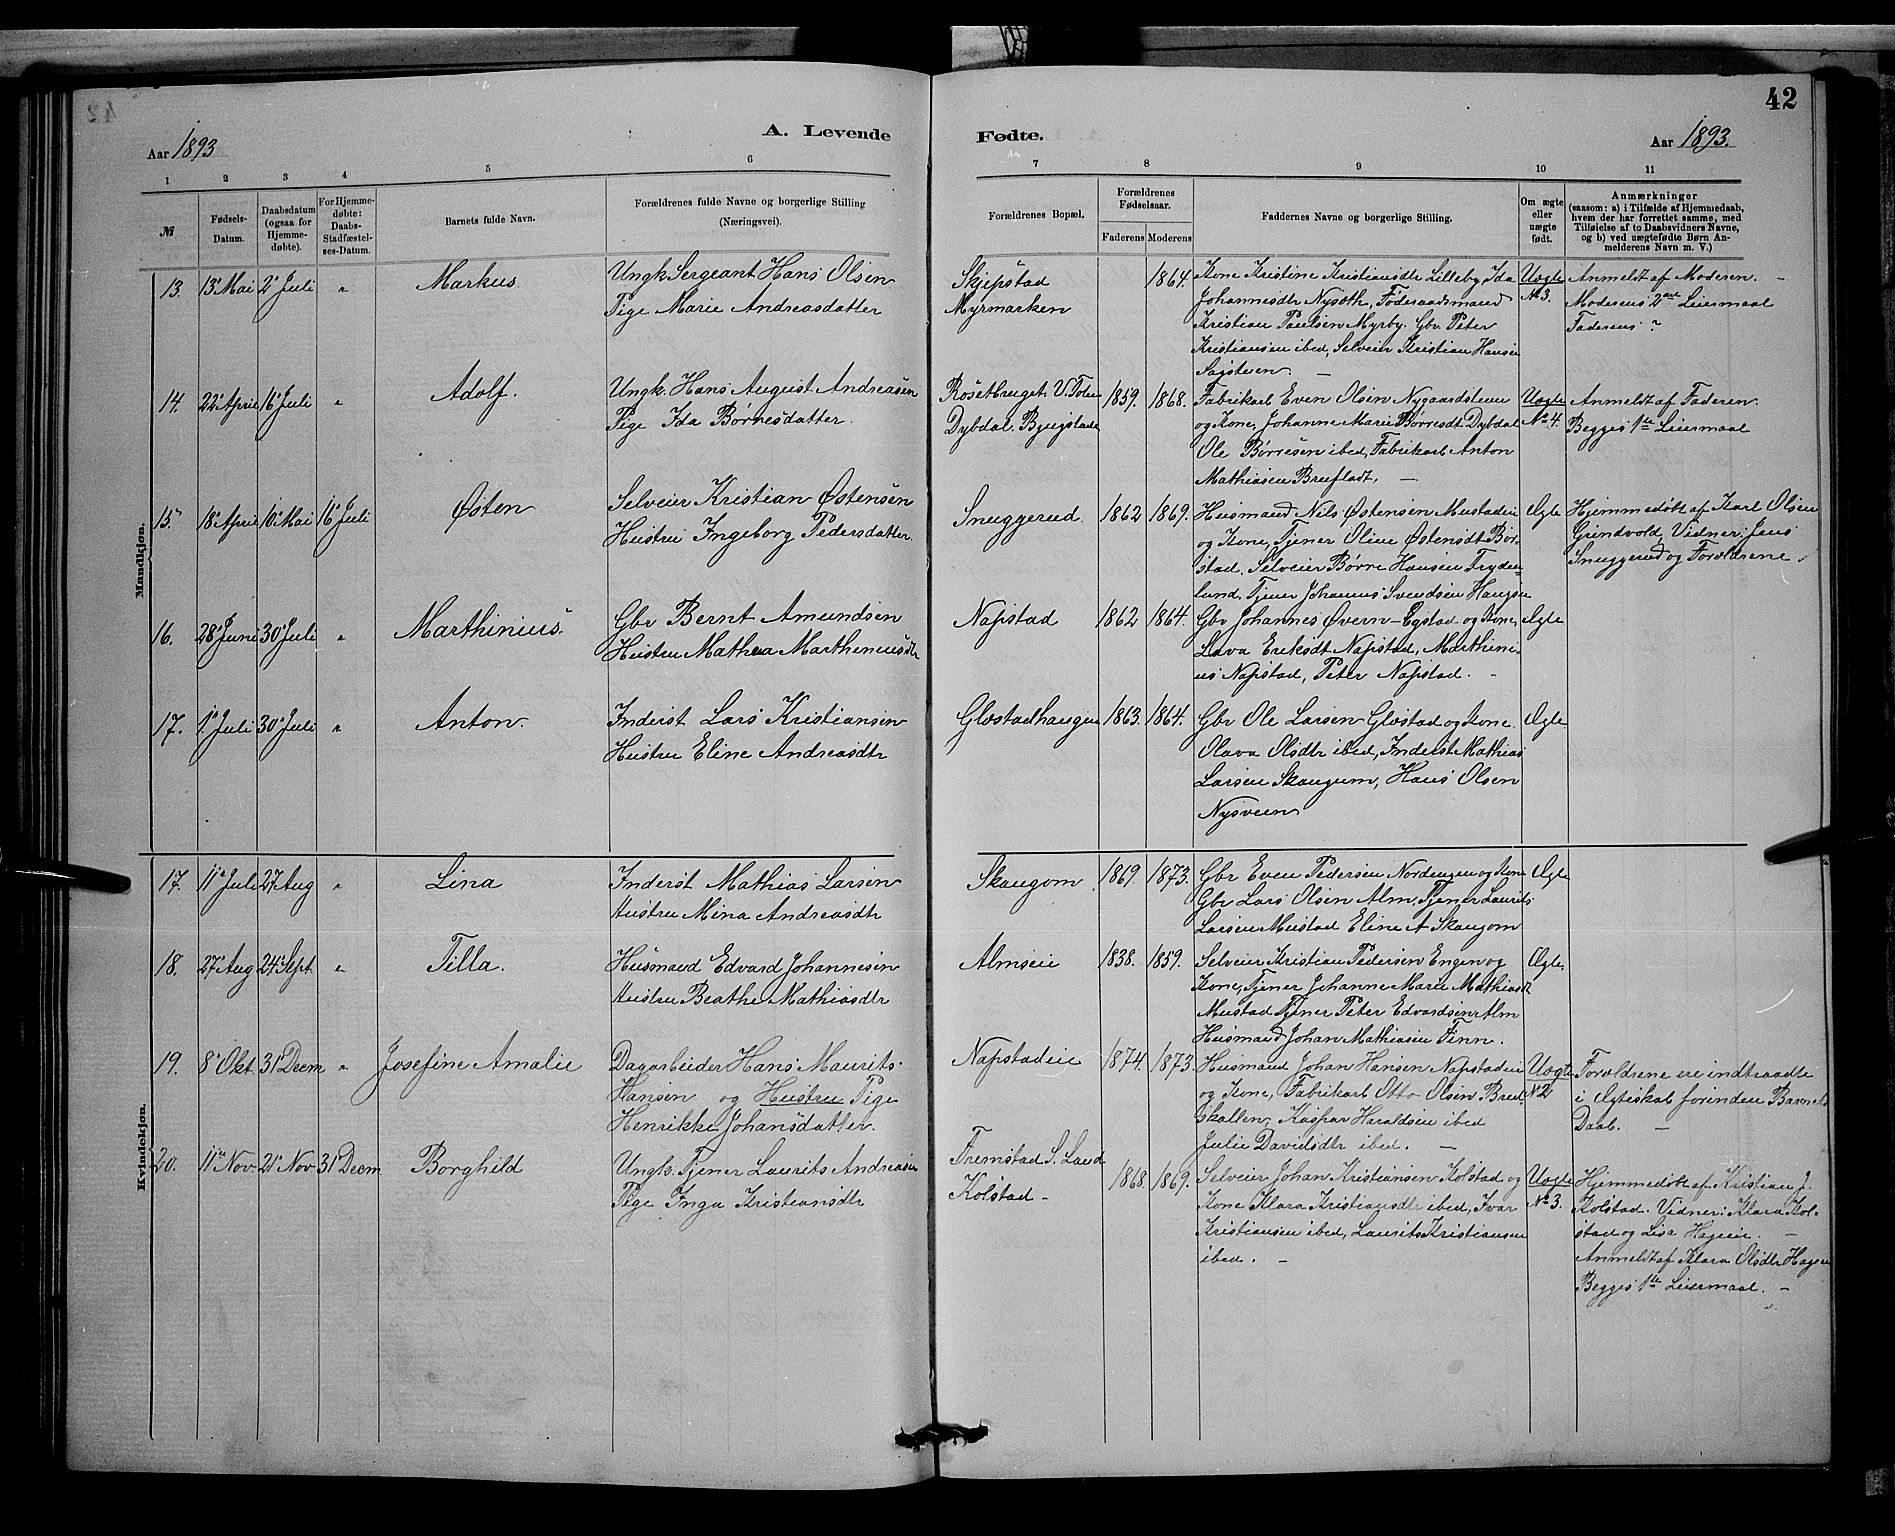 42
A. Levende Fødte.
Aar 1893
Aar 1893.
1 2 3 4 5 6 7 8 9 10 11
№
Fødsels-
Datum.
Daabsdatum
(ogsaa for
Hjemme-
døbte).
For Hjemme-
døbte:
Daabs-
Stadfæstel-
ses-Datum.
Barnets fulde Navn.
Forældrenes fulde Navne og borgerlige Stilling
(Næringsvei).
Forældrenes Bopæl.
Forældrenes
Fødselsaar.
Faderens Moderens
Faddernes Navne og borgerlige Stilling.
Om ægte
eller
uægte
født.
Anmærkninger
(saasom: a) i Tilfælde af Hjemmedaab,
hvem der har forrettet samme, med
Tilføielse af to Daabsvidners Navne,
og b) ved uægtefødte Børn An-
melderens Navn m. V.)
Mandkjøn.
13. 13 Mai 2 Juli " Markus.
Ungk. Sergeant Hans Olsen
Pige Marie Andreasdatter
Skjepstad
Myrmarken
1864.
Kone Kristine Kristiansdtr Lilleby, Ida
Johannesdtr Nyseth, Føderaadsmand
Kristian Paulsen Myrby. Gbr. Peter
Kristiansen ibed, Selveier Kristian Hansen
Sagsteen. —
Uægte
№ 3.
Anmeldt af Moderen. —
Moderens 2det Leiermaal
Faderens ?
14. 22 April 16 Juli " Adolf.
Ungk. Hans August Andreasen
Pige Ida Børresdatter.
Røsetbruget. V. Toten
Dybdal. Bjugstad
1859. 1868.
Fabrikarb Even Olsen Nygaardsteen
og Kone, Johanne Marie Børresdt Dybdal
Ole Børresen ibed, Fabrikarb Anton
Mathiasen Brufladt. —
Uægte
№ 4.
Anmeldt af Faderen.
Begges 1ste Leiermaal
15 18 April 10 Mai 16 Juli Østen
Selveier Kristian Østensen
Hustru Ingeborg Pedersdatter.
Snuggerud. 1862 1869.
Husmand Nils Østensen Mustadeie
og Kone, Tjener Oline Østensdt Bør-
stad. Selveier Børre Hansen Fryden-
lund. Tjener Johannes Svendsen Haugen
Ægte
Hjemmedøbt af Karl Olsen
Grindvold, Vidner: Jens
Snuggerud og Forældrene.
16. 28 Juni 30 Juli " Marthinius.
Gbr Bernt Amundsen
Hustru Mathea Marthiniusdtr
Napstad 1862 1864.
Gbr Johannes Øvern-Egstad og Kone,
Lava Eriksdt Napstad, Marthini-
us Napstad, Peter Napstad. -
Ægte
17. 1 Juli 30 Juli " Anton.
Inderst Lars Kristiansen
Hustru Eline Andreasdtr
Glæstadhaugen 1863. 1864.
Gbr Ole Larsen Glæstad og Kone
Olava Olsdtr ibed, Inderst Mathias
Larsen Skaugum, Hans Olsen
Nysveen
Ægte
Kvindekjøn.
17. 11 Juli 27 Aug " Lina
Inderst Mathias Larsen
Hustru Mina Andreasdtr
Skaugom 1869. 1873.
Gbr Even Pedersen Nordengen og Kone
Gbr Lars Olsen Alm, Tjener Laurits
Larsen Mustad Eline A Skaugom
Ægte
18. 27 Aug 24 Sept. " Tilla.
Husmand Edvard Johannesen
Hustru Beathe Mathiasdtr
Almseie 1838. 1859.
Selveier Kristian Pedersen Engen og
Kone, Tjener Johanne Marie Mathiasdt
Mustad Tjener Peter Edvardsen Alm
Husmand Johan Mathiasen Finn.
Ægte
19. 8 Okt. 31 Decm " Josefine Amalie
Dagarbeider Hans Maurits
Hansen og Hustru Pige
Henrikke Johansdatter.
Napstadeie 1874. 1873.
Husmand Johan Hansen Napstadeie
og Kone, Fabrikarb Otto Olsen Bred-
skallen, Kaspar Haraldsen ibed
Julie Davidsdtr ibed. —
Uægte
№ 2
Forældrene ere indtraadte
i Ægteskab forinden Barnets
Daab. —
20. 11 Nov 21 Nov 31 Decm Borghild
Ungk. Tjener Laurits Andreasen
Pige Inga Kristiansdtr
Fremstad S. Land
Kolstad -
1868. 1869.
Selveier Johan Kristiansen Kolstad og
Kone Klara Kristiansdtr ibed, Ivar
Kristiansen ibed, Laurits Kristiansen
ibed. —
Uægte
№ 3.
Hjemmedøbt af Kristian J.
Kolstad. Vidner: Klara Kol-
stad og Lisa Hageie. —
Anmeldt af Klara Olsdtr Hagen
Begges 1ste Leiermaal. —